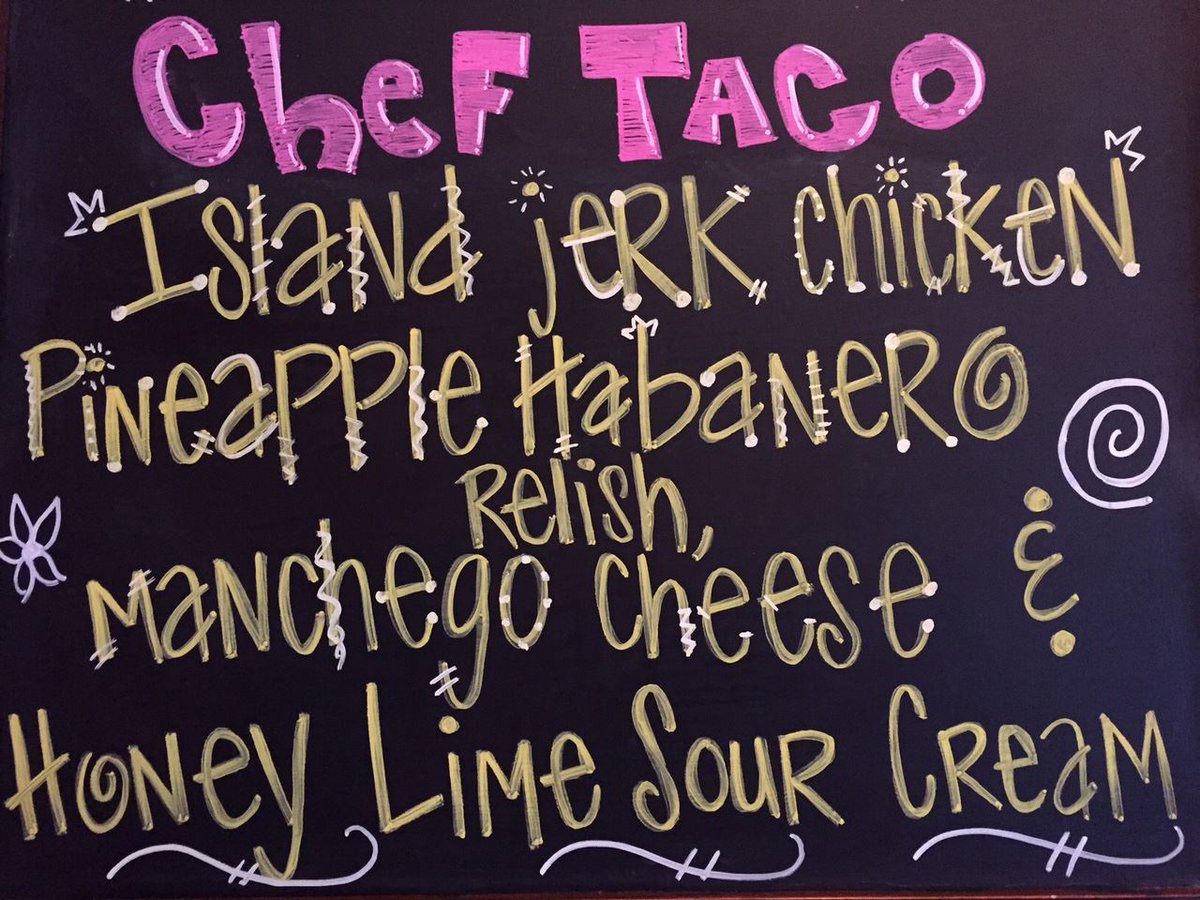 Chef Taco
Island jerk chicken
Pineapple Habanero
Relish,
Manchego cheese &
Honey Lime Sour Cream